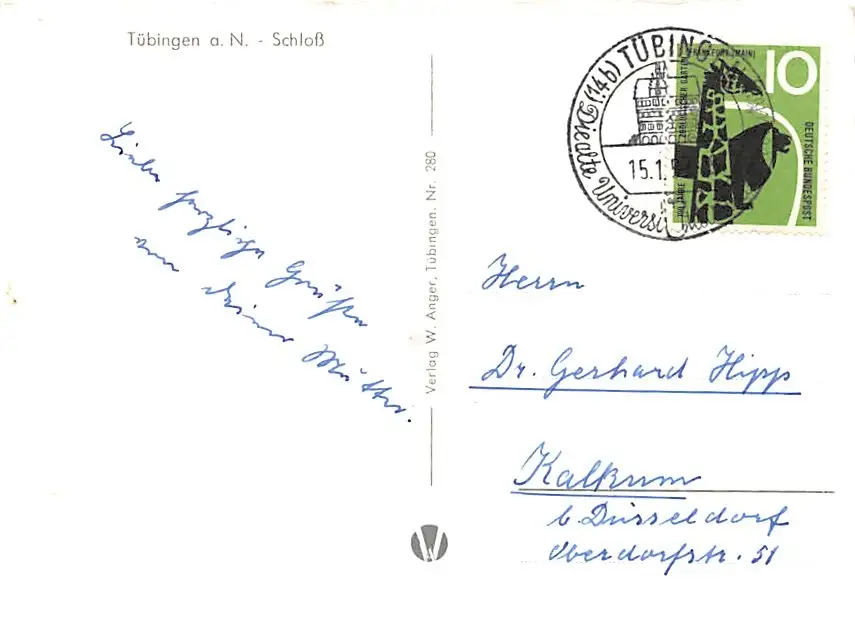 Tübingen a. N. - Schloß
Liebe herzliche Grüße
von Deiner Mutter.
Verlag W. Anger, Tübingen. Nr. 280
(14b) TÜBING
Die alte Universi
15.1.5
FRANKFURT (MAIN)
ZOOLOGISCHER GARTEN
100 JAHRE
10
DEUTSCHE BUNDESPOST
Herrn
Dr. Gerhard Hipp
Kalkum
b. Düsseldorf
Oberdorfstr. 51